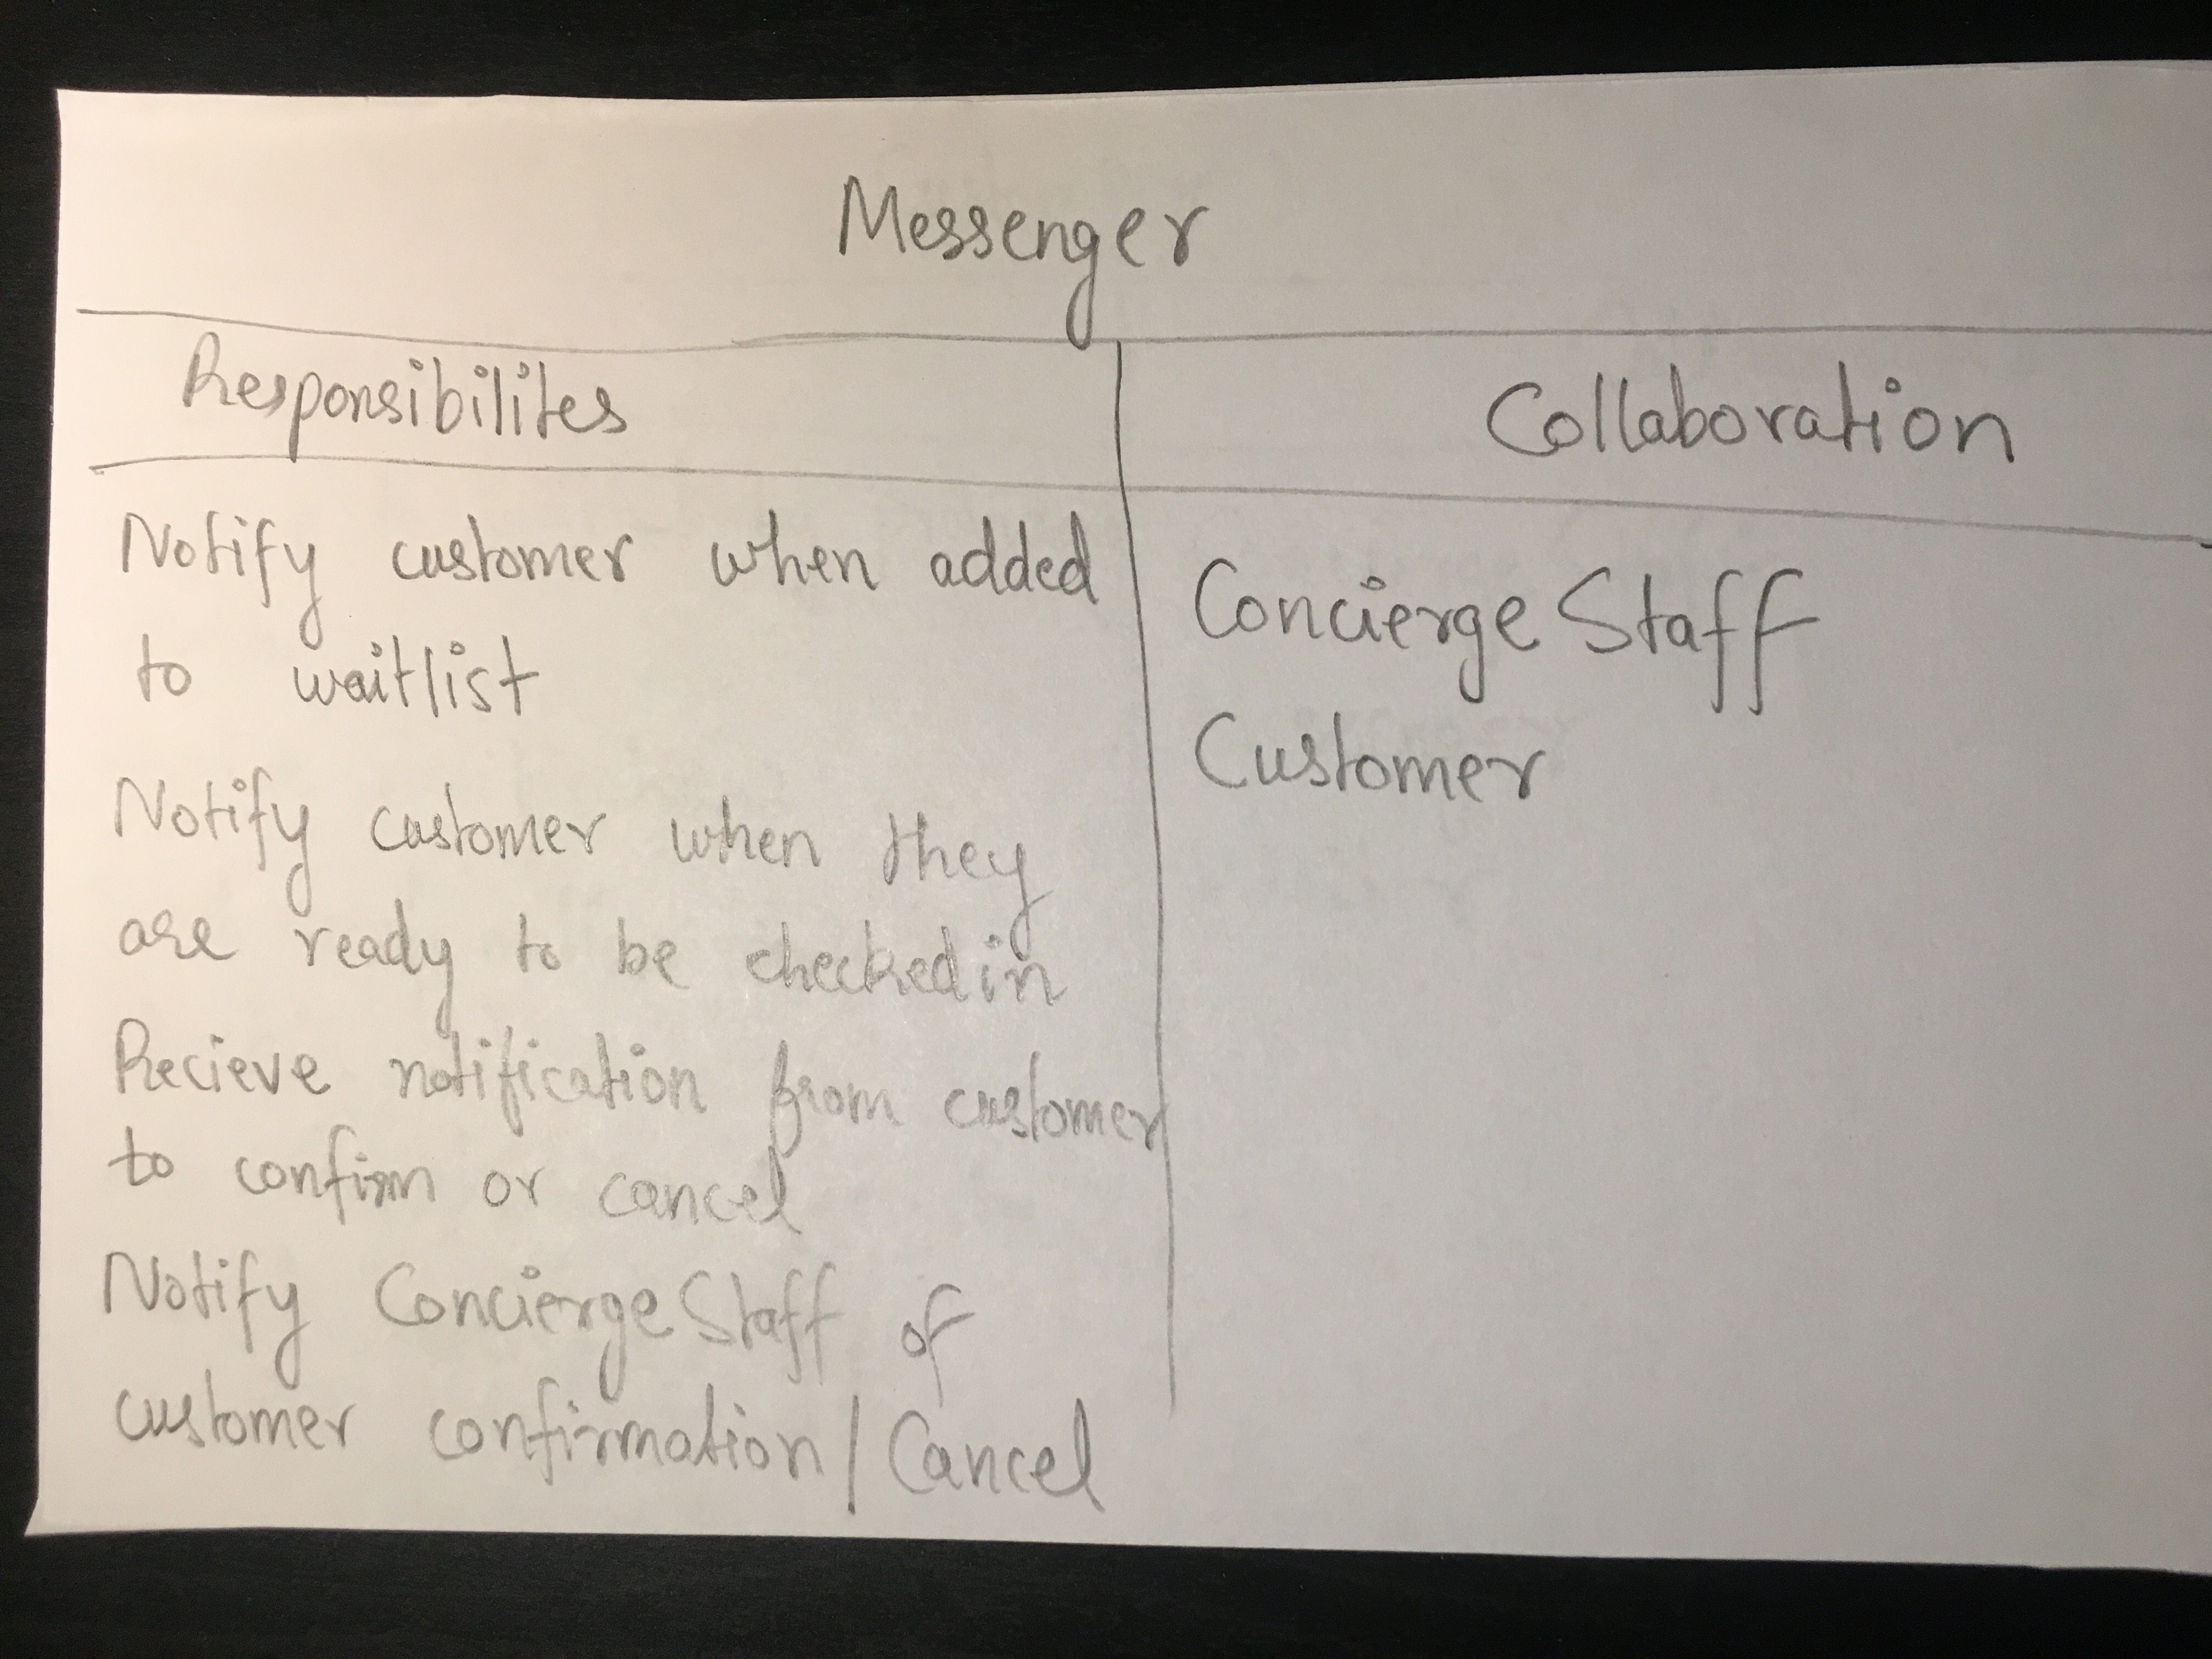 Messenger
Responsibilites
Collaboration
Notify customer when added
to waitlist
Notify customer when they
are ready to be checkedin
Recieve notification from customer
to confirm or cancel
Notify ConciergeStaff of
customer confirmation/Cancel
ConciergeStaff
Customer